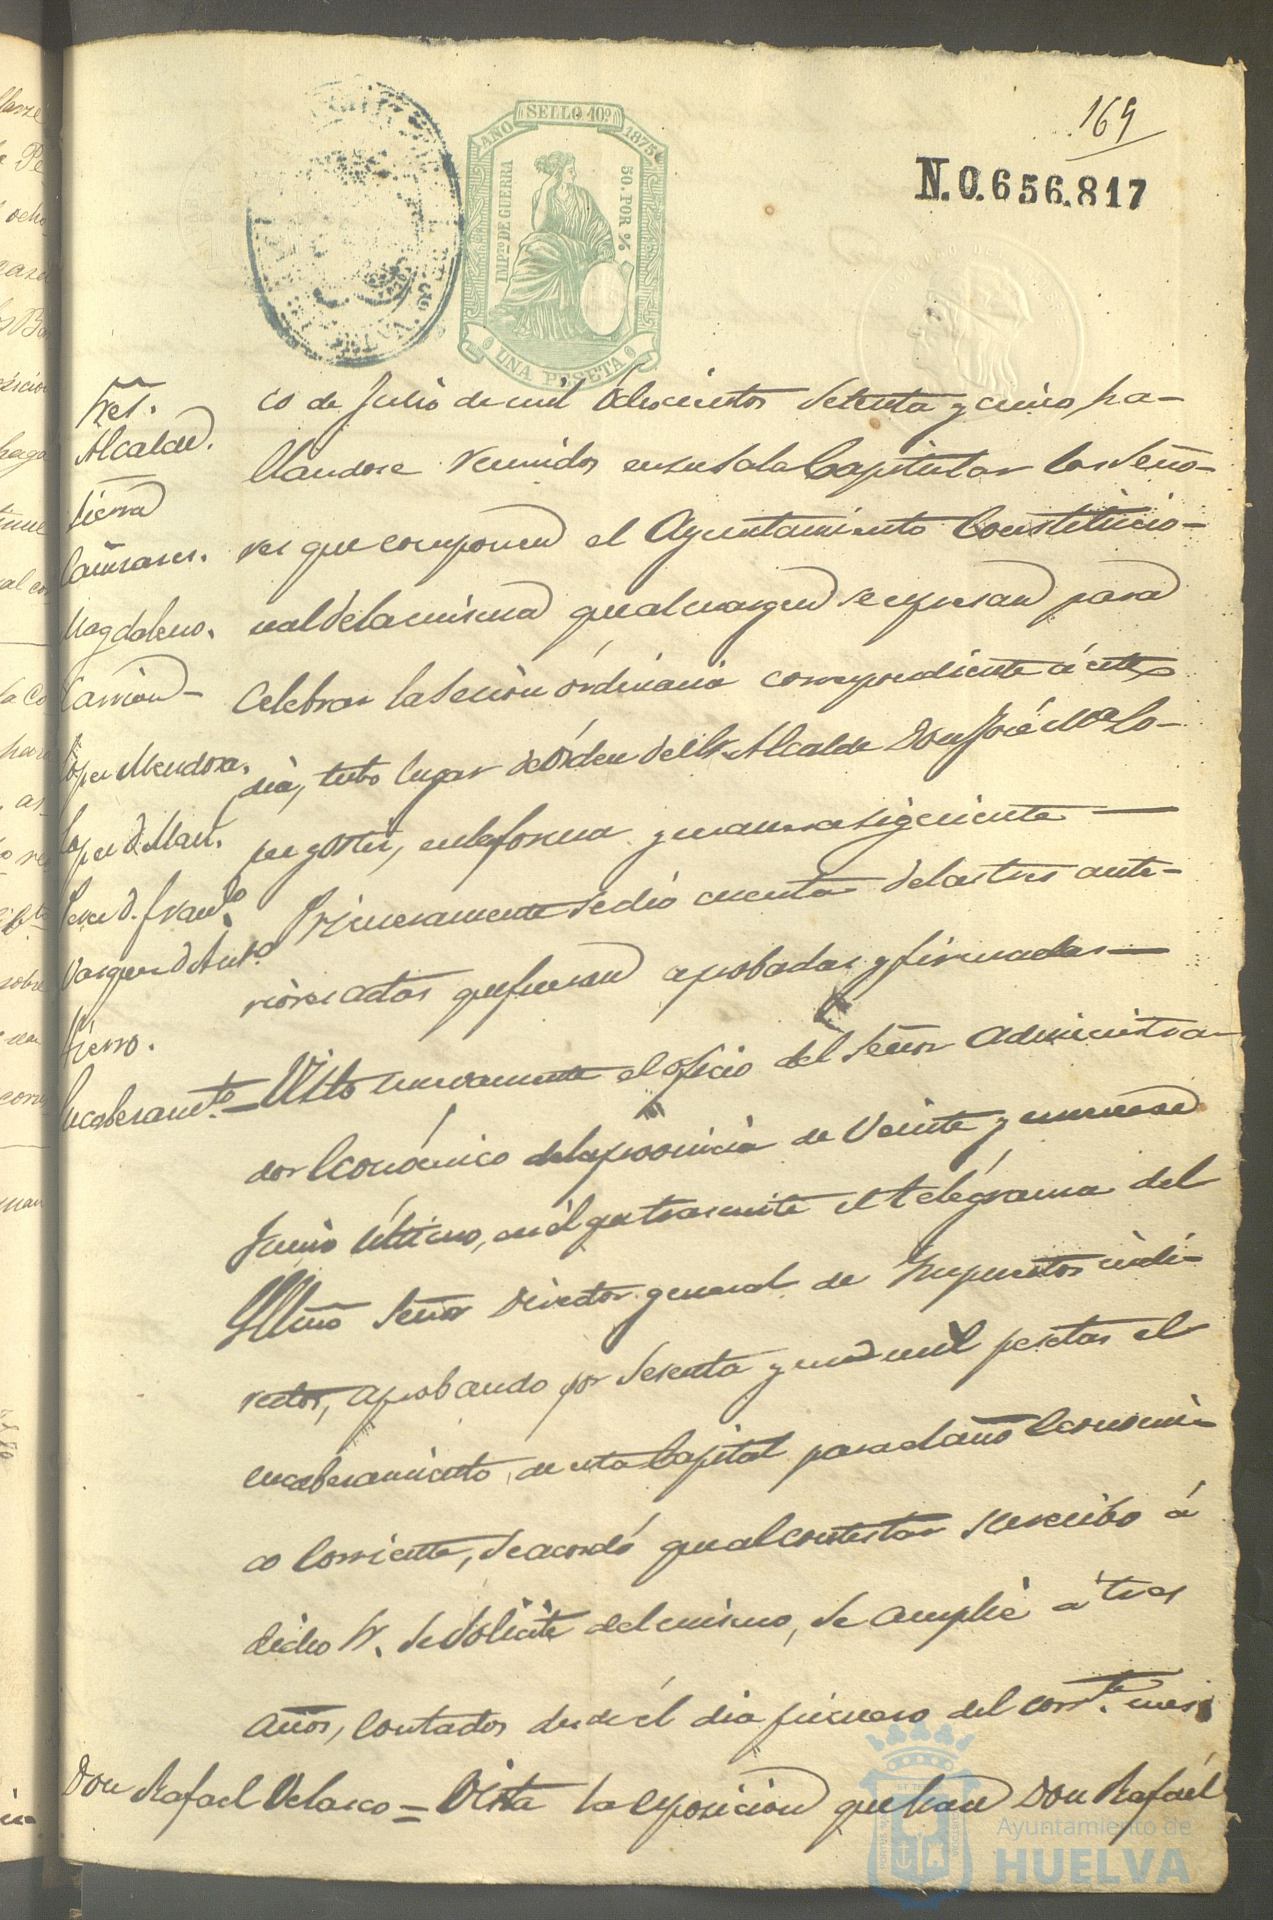 169
AÑO SELLO 10º 1875
IMPTO DE GUERRA
50 POR %
UNA PESETA
N.0.656.817
Sres.
Alcalde.
Sierra
Cañizares.
Magdaleno.
Carrion
Lopez Mendoza.
Lopez D. Man.
Perez D. Franco.
Vazquez D. Anto
Fierro.
co de Julio de mil ochocientos setenta y cinco, ha-
llandose reunidos en su Sala Capitular los Seño-
res que componen el Ayuntamiento Constitucio-
nal de la misma que al margen se expresan para
celebrar la sesion ordinaria correspondiente á este
dia, tubo lugar de órden del Sr. Alcalde Don José Ma Lo-
pez y Ortiz, en la forma y manera siguiente
Primeramente se dió cuenta de las tres ante-
riores actas que fueron aprobadas y firmadas
Encabezamto = Visto nuevamente el oficio del Señor Administra-
dor Económico de la provincia de Veinte y nueve de
Junio último, en el que trascribe el telégrama del
Illmo Señor Director general de Impuestos indi-
rectos, aprobando por sesenta y un mil pesetas el
encabezamiento de esta Capital para el año Economi-
co corriente, se acordó que al contestar su recibo á
dicho Sr. se solicite del mismo, se amplie á tres
años, contados desde él dia primero del corrte. mes
Don Rafael Velasco = Vista la exposicion que hace Don Rafaél
Ayuntamiento de
HUELVA